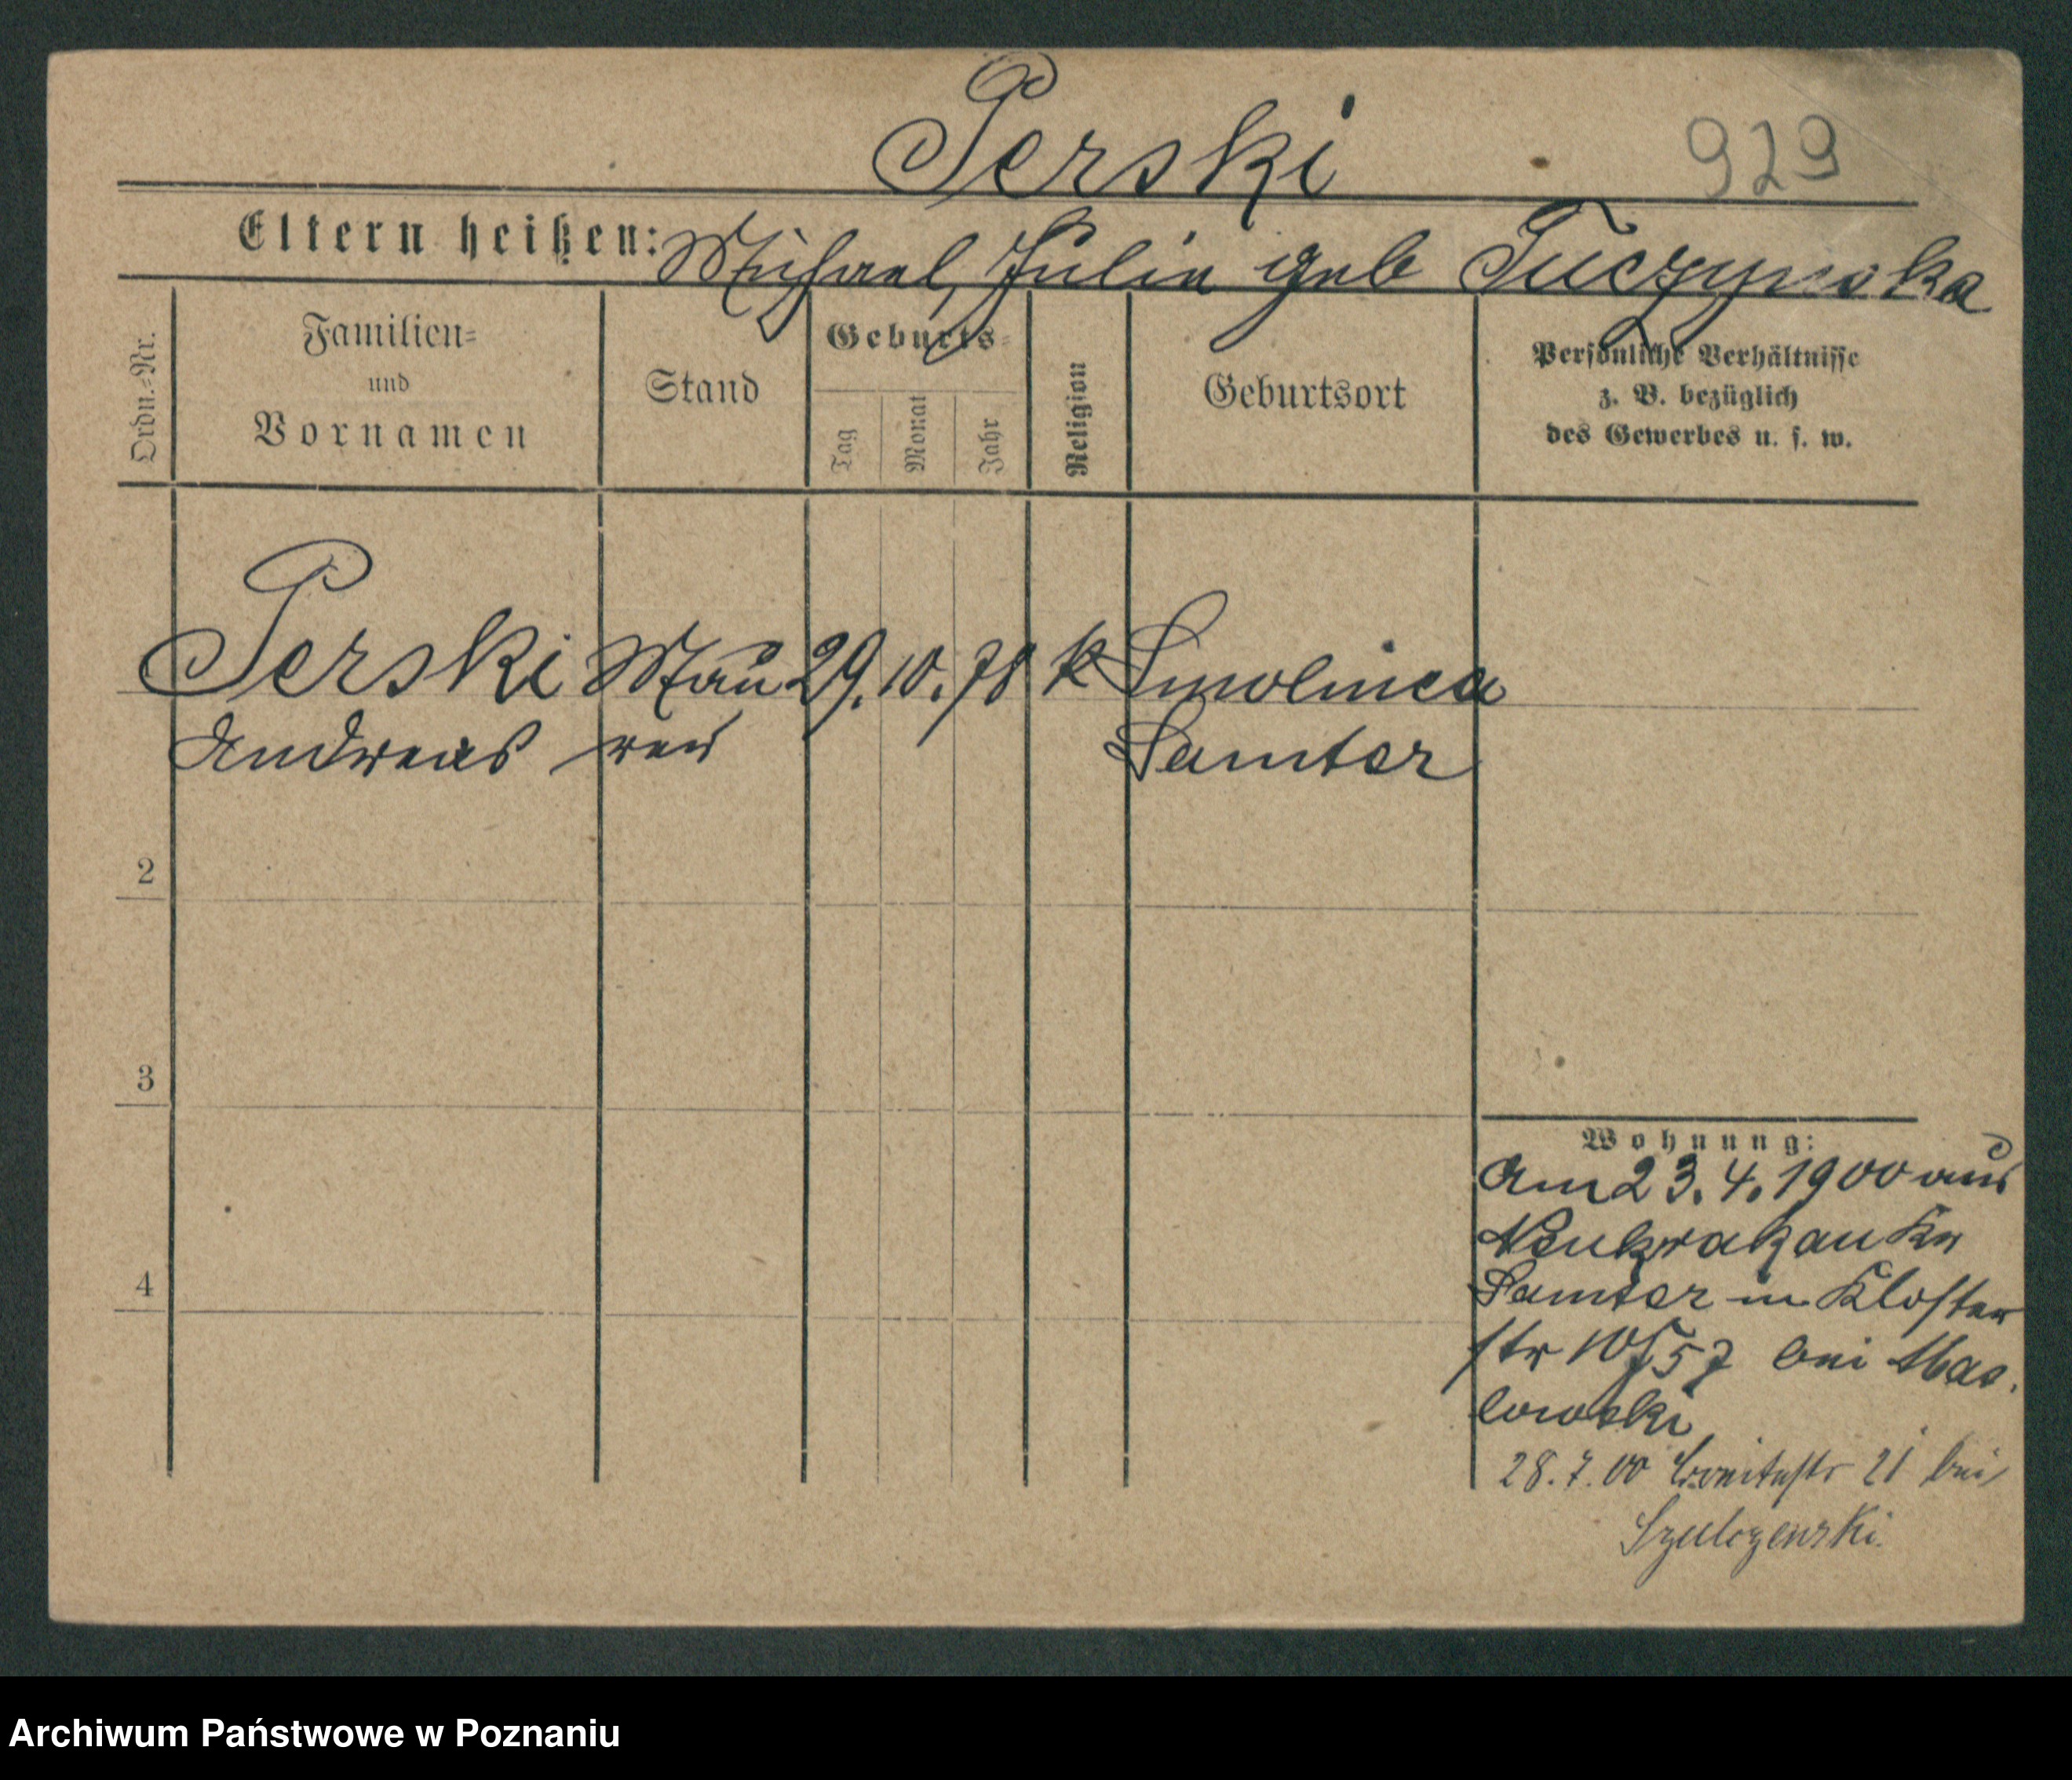 Perski
929
Eltern heißen: Michael, Julie geb Tuczynska
Ordn.-Nr.
Familien-
und
Vornamen
Stand
Geburts-
Tag
Monat
Jahr
Religion
Geburtsort
Persönliche Verhältnisse
z. B. bezüglich
des Gewerbes u. s. w.
Perski Mau 29. 10. 78 k Smolnica
Andreas rer Samter
2
3
4
Wohnung:
Am 23.4.1900 aus
Neukrakau Kr
Samter in Kloster
str bei Mas.
lowski
28.7.00 Breitestr 21 bei
Szulczenski.
Archiwum Państwowe w Poznaniu